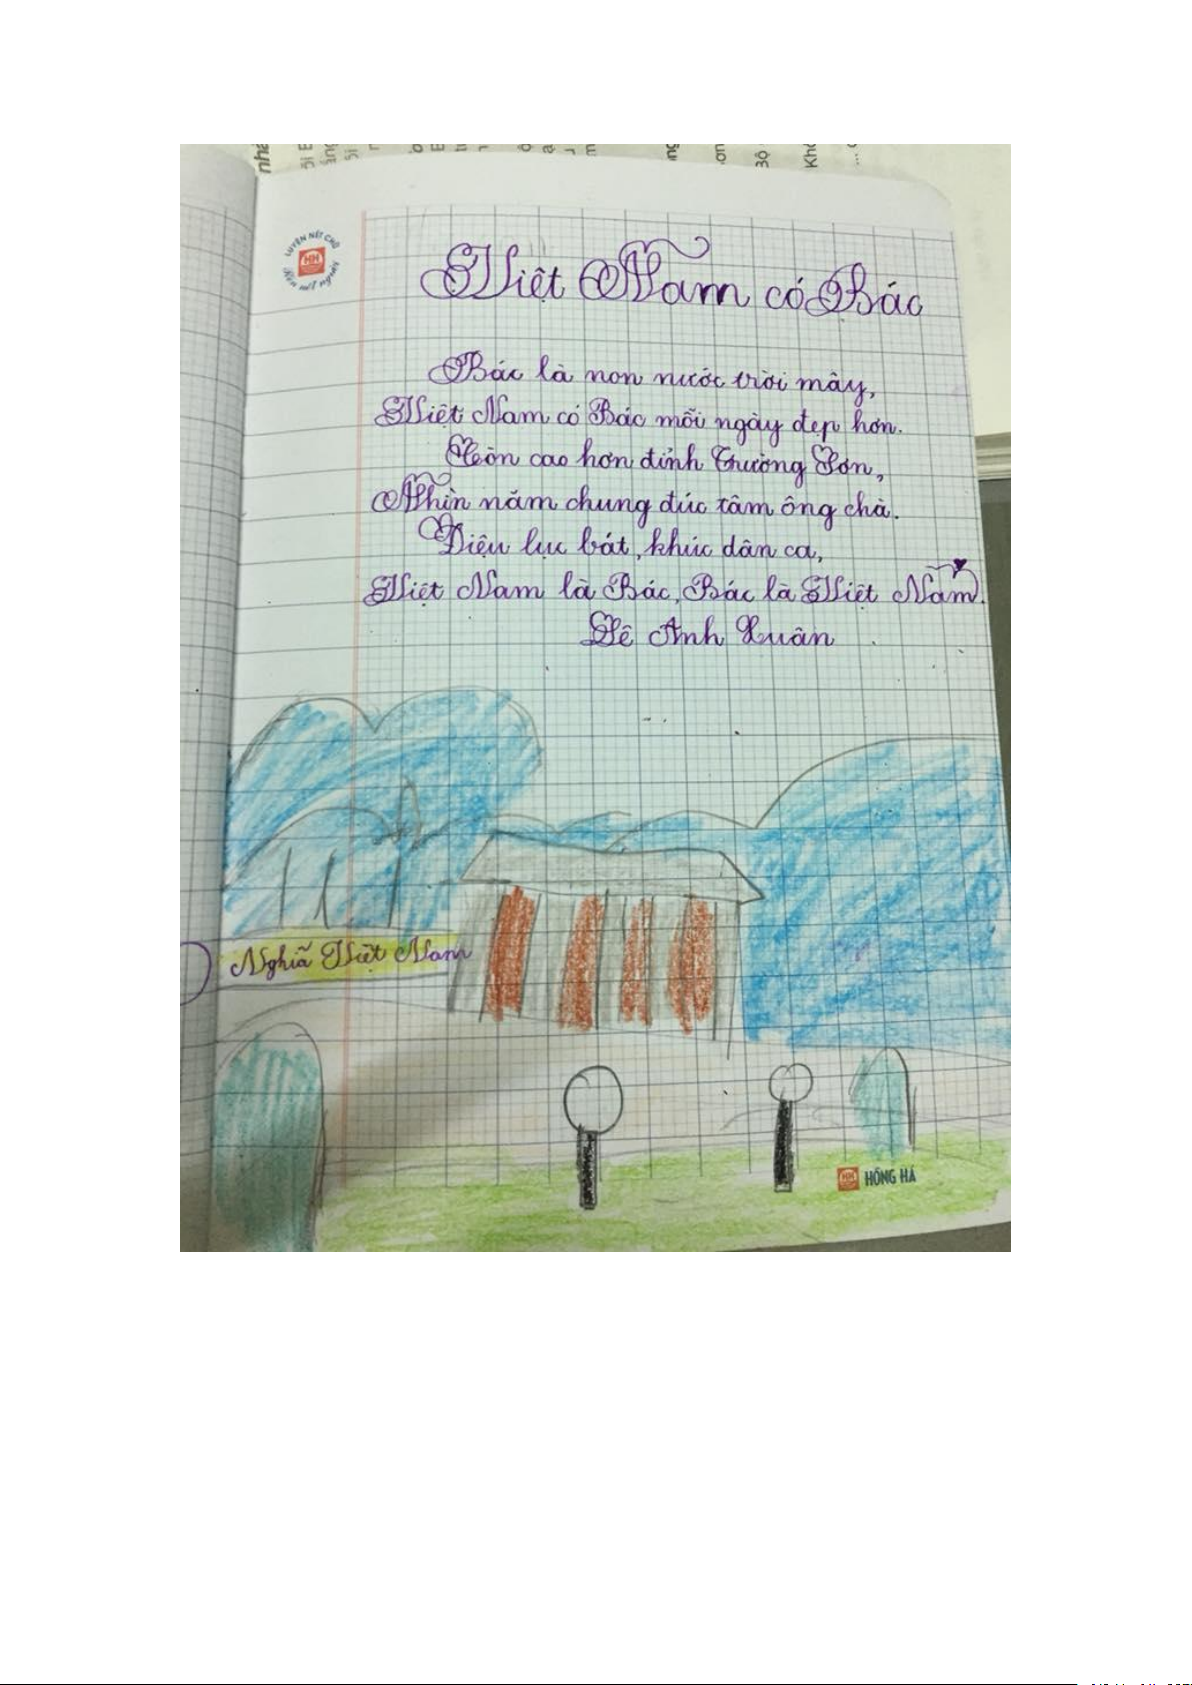 LUYỆN NÉT CHỮ
HH
Rèn nết người
Việt Năm có Bác
Bác là non nước trời mây,
Việt Nam có Bác mỗi ngày đẹp hơn.
Còn cao hơn đỉnh Trường Sơn,
Nhìn năm chung đúc tâm ông cha.
Điệu lục bát, khúc dân ca,
Việt Nam là Bác, Bác là Việt Nam.
Lê Anh Xuân
Nghĩã Việt Nam
HH HỒNG HÀ